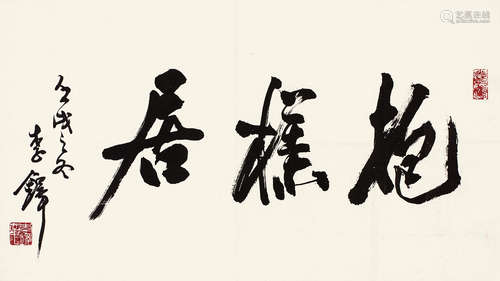 抱樸居
壬戌之冬
李鐸